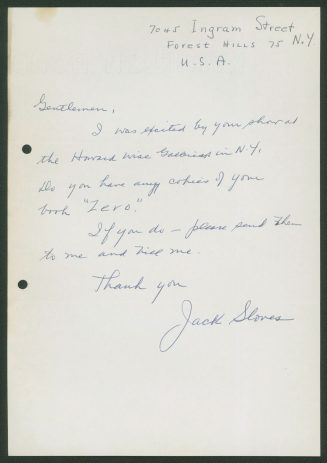 7045 Ingram Street
Forest Hills 75 N.Y.
U.S.A.
Gentlemen,
I was excited by your show at
the Howard Wise Galleries in N.Y.
Do you have any copies of your
book "Zero".
If you do - please send them
to me and bill me.
Thank you
Jack Sloves